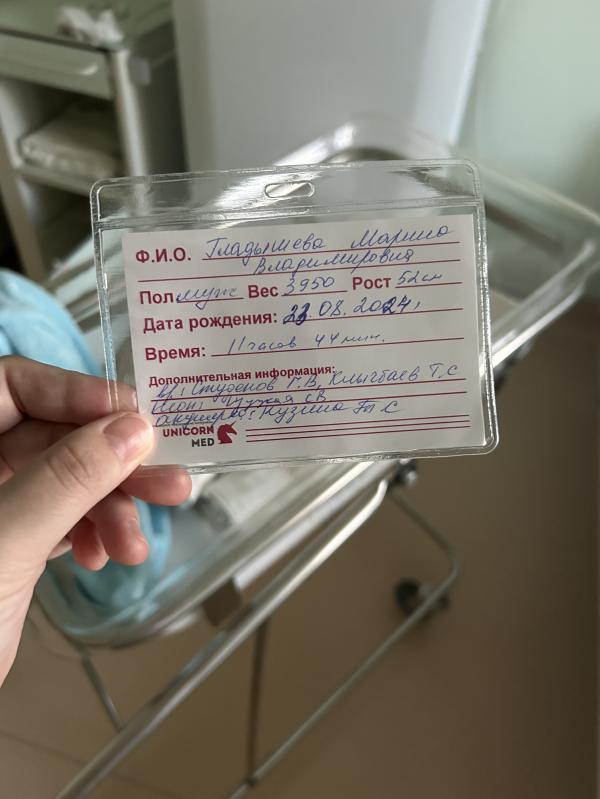 Ф.И.О. Гладышева Марина
Владимировна
Пол муж Вес 3950 Рост 52 см
Дата рождения: 23.08.2024г
Время: 11 часов 44 мин.
Дополнительная информация:
вр: Студенов Г.В, Клычбаев Т.С
СВ
акушерка: Кузина Т.С
UNICORN
MED